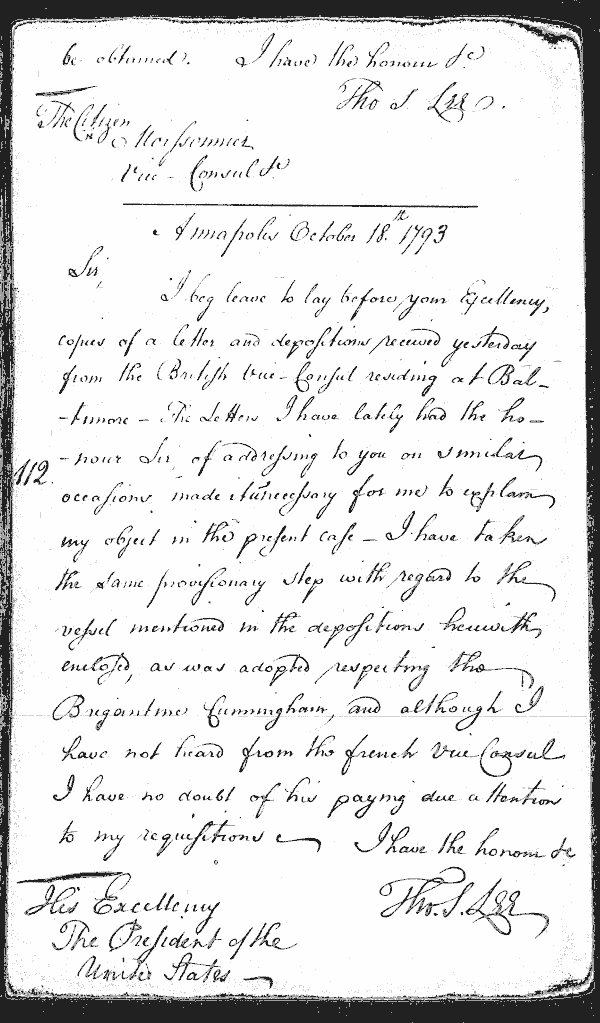 be obtained. I have the honour &c
Tho S. Lee.
The Citizen
Moissonnier
Vice - Consul &c
Annapolis October 18.th 1793
Sir,
I beg leave to lay before your Excellency,
copies of a letter and depositions received yesterday
from the British Vice-Consul residing at Bal-
-timore - The Letters I have lately had the ho-
-nour Sir, of addressing to you on similar
112.
occasions made it unnecessary for me to explain
my object in the present case - I have taken
the same provisionary step with regard to the
vessel mentioned in the depositions herewith
enclosed, as was adopted respecting the
Brigantine Cunningham, and although I
have not heard from the french Vice Consul
I have no doubt of his paying due attention
to my requisitions
I have the honour &c
Tho. S. Lee
His Excellency
The President of the
United States -